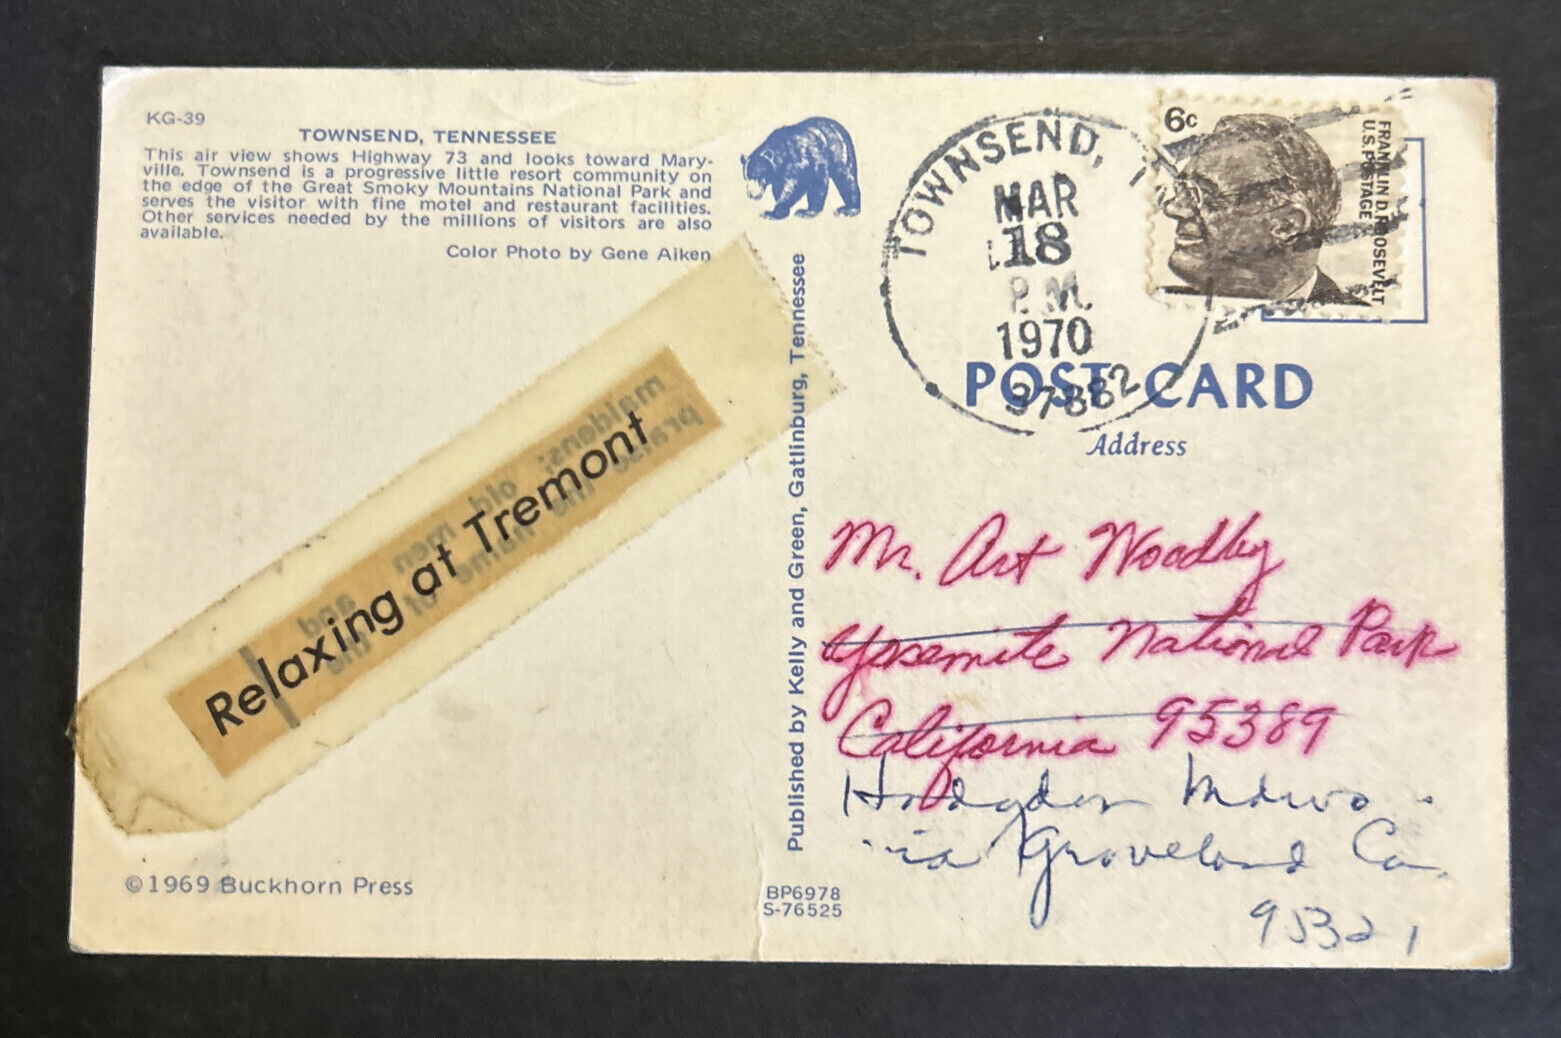 KG-39
TOWNSEND, TENNESSEE
This air view shows Highway 73 and looks toward Mary-
ville. Townsend is a progressive little resort community on
the edge of the Great Smoky Mountains National Park and
serves the visitor with fine motel and restaurant facilities.
Other services needed by the millions of visitors are also
available.
Color Photo by Gene Aiken
Relaxing at Tremont
maidens;
old men
and
praise the
name of
the
© 1969 Buckhorn Press
Published by Kelly and Green, Gatlinburg, Tennessee
BP6978
S-76525
TOWNSEND, TN
MAR
18
P.M.
1970
37882
6c
FRANKLIN D. ROOSEVELT
U.S. POSTAGE
POST CARD
Address
Mr. Art Woodby
Yosemite National Park
California 95389
Hodgdon Mdws
via Groveland Ca.
95321